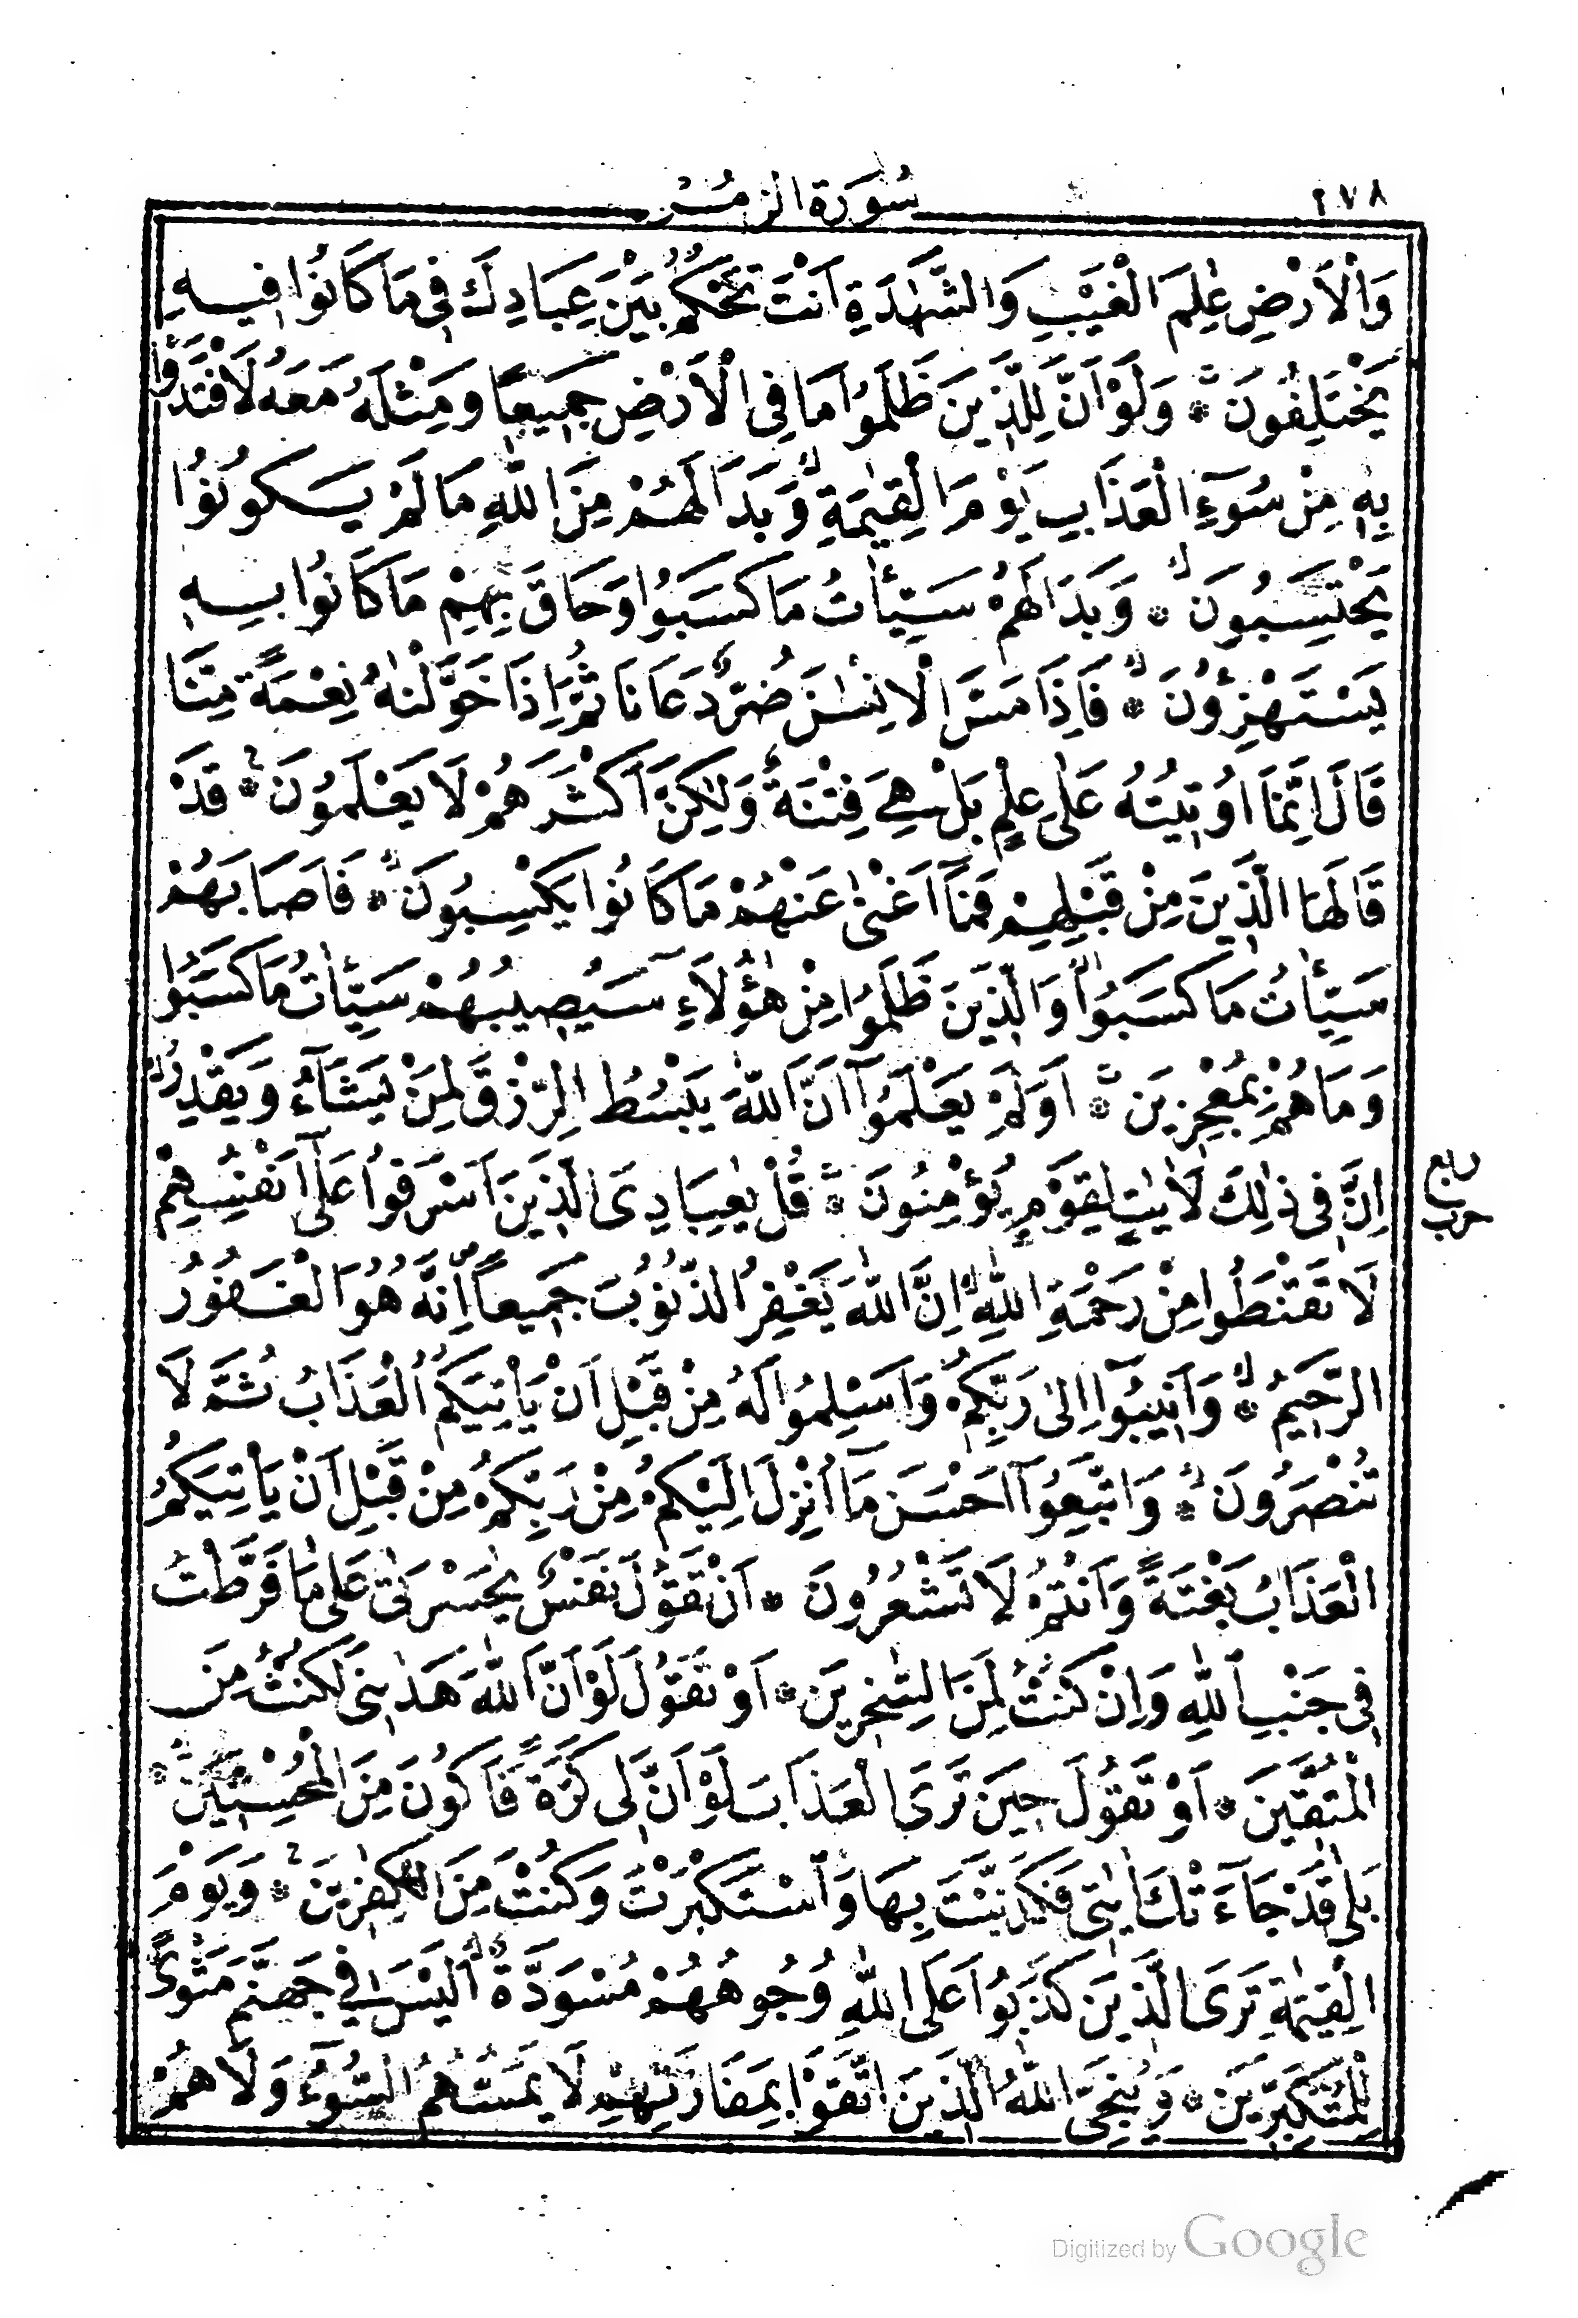 ٢٧٨
سُورَةُ الزُّمَرِ
وَالْاَرْضِ عٰلِمَ الْغَيْبِ وَالشَّهٰدَةِ اَنْتَ تَحْكُمُ بَيْنَ عِبَادِكَ فِى مَا كَانُوا فِيهِ
يَخْتَلِفُونَ ۞ وَلَوْ اَنَّ لِلَّذِينَ ظَلَمُوا مَا فِى الْاَرْضِ جَمِيعًا وَمِثْلَهُ مَعَهُ لَافْتَدَوْا
بِهِ مِنْ سُوٓءِ الْعَذَابِ يَوْمَ الْقِيٰمَةِ وَبَدَا لَهُمْ مِنَ اللّٰهِ مَا لَمْ يَكُونُوا
يَحْتَسِبُونَ ۞ وَبَدَا لَهُمْ سَيِّـَٔاتُ مَا كَسَبُوا وَحَاقَ بِهِمْ مَا كَانُوا بِهِ
يَسْتَهْزِؤُنَ ۞ فَاِذَا مَسَّ الْاِنْسٰنَ ضُرٌّ دَعَانَا ثُمَّ اِذَا خَوَّلْنٰهُ نِعْمَةً مِنَّا
قَالَ اِنَّمَا اُوتِيتُهُ عَلٰى عِلْمٍ بَلْ هِىَ فِتْنَةٌ وَلٰكِنَّ اَكْثَرَهُمْ لَا يَعْلَمُونَ ۞ قَدْ
قَالَهَا الَّذِينَ مِنْ قَبْلِهِمْ فَمَآ اَغْنٰى عَنْهُمْ مَا كَانُوا يَكْسِبُونَ ۞ فَاَصَابَهُمْ
سَيِّـَٔاتُ مَا كَسَبُوا وَالَّذِينَ ظَلَمُوا مِنْ هٰٓؤُلَآءِ سَيُصِيبُهُمْ سَيِّـَٔاتُ مَا كَسَبُوا
وَمَا هُمْ بِمُعْجِزِينَ ۞ اَوَلَمْ يَعْلَمُوٓا اَنَّ اللّٰهَ يَبْسُطُ الرِّزْقَ لِمَنْ يَشَآءُ وَيَقْدِرُ
اِنَّ فِى ذٰلِكَ لَاٰيٰتٍ لِقَوْمٍ يُؤْمِنُونَ ۞ قُلْ يٰعِبَادِىَ الَّذِينَ اَسْرَفُوا عَلٰٓى اَنْفُسِهِمْ
ربع
حزب
لَا تَقْنَطُوا مِنْ رَحْمَةِ اللّٰهِ اِنَّ اللّٰهَ يَغْفِرُ الذُّنُوبَ جَمِيعًا اِنَّهُ هُوَ الْغَفُورُ
الرَّحِيمُ ۞ وَاَنِيبُوٓا اِلٰى رَبِّكُمْ وَاَسْلِمُوا لَهُ مِنْ قَبْلِ اَنْ يَأْتِيَكُمُ الْعَذَابُ ثُمَّ لَا
تُنْصَرُونَ ۞ وَاتَّبِعُوٓا اَحْسَنَ مَآ اُنْزِلَ اِلَيْكُمْ مِنْ رَبِّكُمْ مِنْ قَبْلِ اَنْ يَأْتِيَكُمُ
الْعَذَابُ بَغْتَةً وَاَنْتُمْ لَا تَشْعُرُونَ ۞ اَنْ تَقُولَ نَفْسٌ يٰحَسْرَتٰى عَلٰى مَا فَرَّطْتُ
فِى جَنْبِ اللّٰهِ وَاِنْ كُنْتُ لَمِنَ السّٰخِرِينَ ۞ اَوْ تَقُولَ لَوْ اَنَّ اللّٰهَ هَدٰينِى لَكُنْتُ مِنَ
الْمُتَّقِينَ ۞ اَوْ تَقُولَ حِينَ تَرَى الْعَذَابَ لَوْ اَنَّ لِى كَرَّةً فَاَكُونَ مِنَ الْمُحْسِنِينَ ۞
بَلٰى قَدْ جَآءَتْكَ اٰيٰتِى فَكَذَّبْتَ بِهَا وَاسْتَكْبَرْتَ وَكُنْتَ مِنَ الْكٰفِرِينَ ۞ وَيَوْمَ
الْقِيٰمَةِ تَرَى الَّذِينَ كَذَبُوا عَلَى اللّٰهِ وُجُوهُهُمْ مُسْوَدَّةٌ اَلَيْسَ فِى جَهَنَّمَ مَثْوًى
لِلْمُتَكَبِّرِينَ ۞ وَيُنَجِّى اللّٰهُ الَّذِينَ اتَّقَوْا بِمَفَازَتِهِمْ لَا يَمَسُّهُمُ السُّوٓءُ وَلَا هُمْ
Digitized by Google